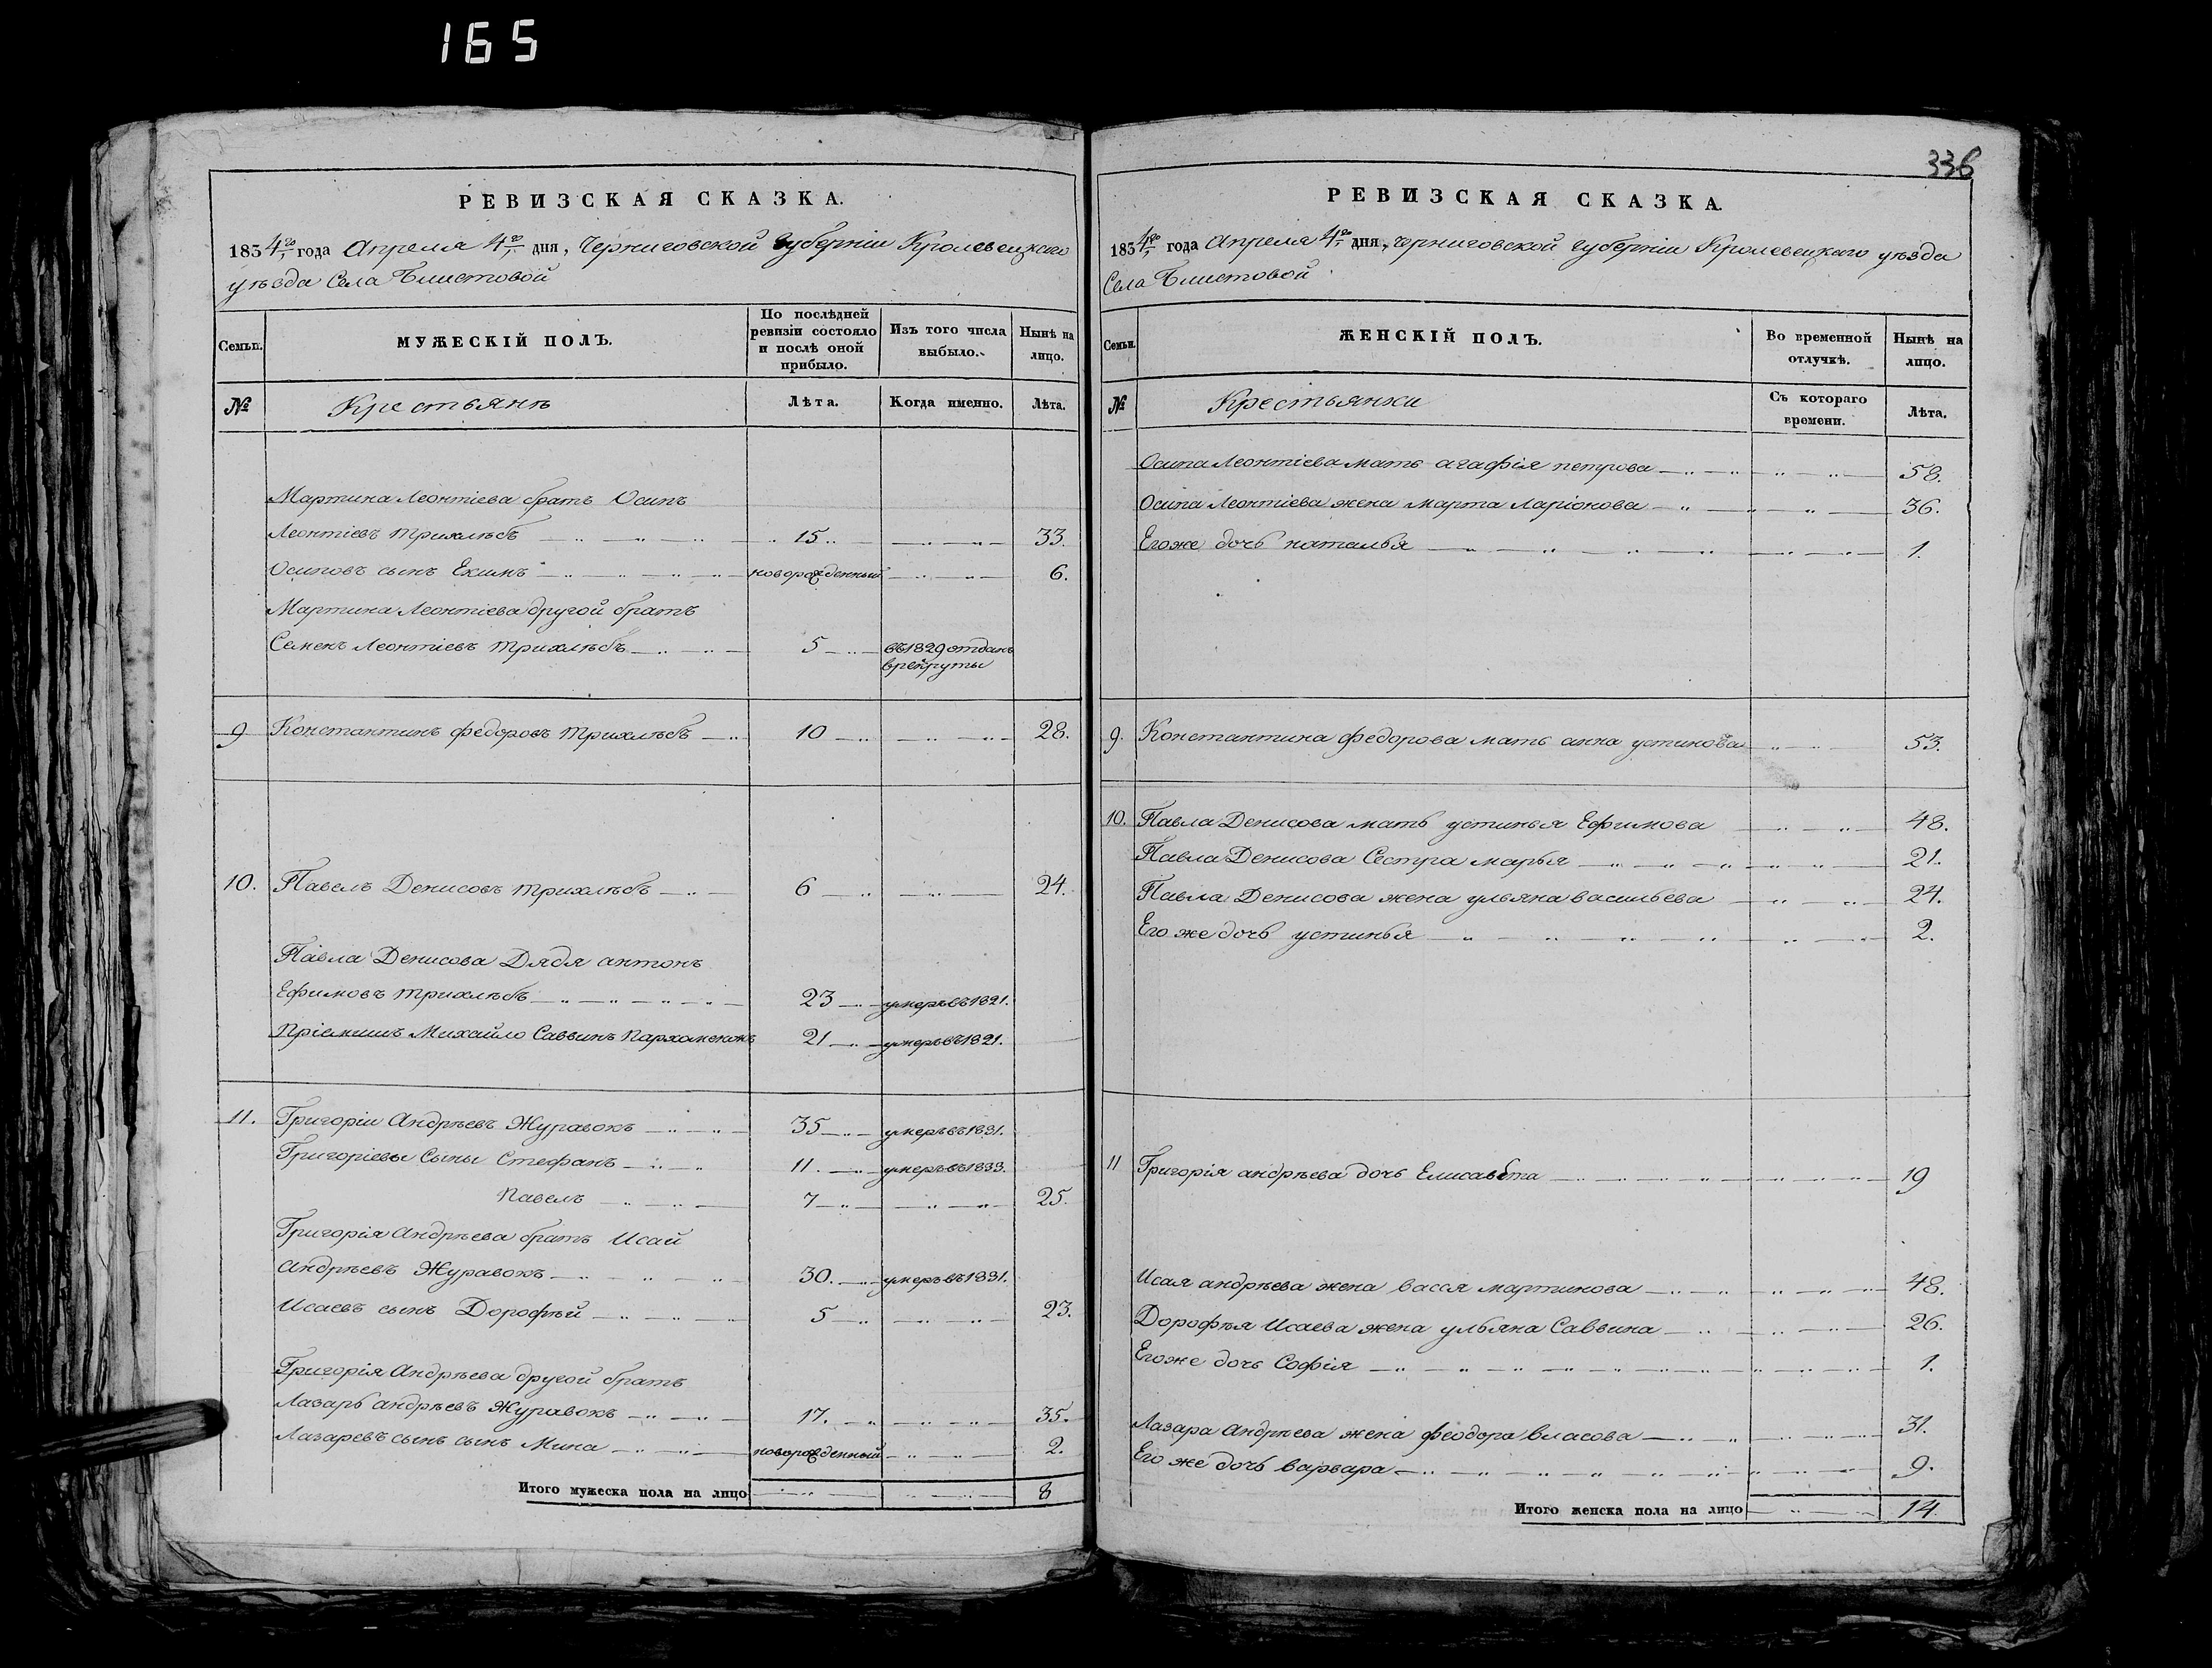 165
РЕВИЗСКАЯ СКАЗКА.
1834го года Апреля 4го дня, Черниговской Губерніи Кролевецкаго
уѣзда Села Блистовой
Семьи.
МУЖЕСКІЙ ПОЛЪ.
По послѣдней ревизіи состояло и послѣ оной прибыло.
Изъ того числа выбыло.
Нынѣ на лицо.
№
Крестьянъ
Лѣта.
Когда именно.
Лѣта.
Мартина Леонтіева братъ Осипъ
Леонтіевъ Трихлѣбъ 15 33.
Осиповъ сынъ Екимъ новорожденный 6.
Мартина Леонтіева другой братъ
Семенъ Леонтіевъ Трихлѣбъ 5 въ 1829 отданъ
в рекруты
9 Константинъ Федоровъ Трихлѣбъ 10 28.
10. Павелъ Денисовъ Трихлѣбъ 6 24.
Павла Денисова Дядя антонъ
Ефимовъ Трихлѣбъ 23 умеръ въ 1821.
Пріемишъ Михайло Саввинъ Пархоменокъ 21 умеръ въ 1821.
11. Григоріи Андрѣевъ Журавокъ 35 умеръ въ 1831.
Григоріевы Сыны Стефанъ 11. умеръ въ 1833.
Павелъ 7 25.
Григорія Андрѣева братъ Исай
Андрѣевъ Журавокъ 30. умеръ въ 1831.
Исаевъ сынъ Дорофѣй 5 23.
Григорія Андрѣева другой братъ
Лазарь андрѣевъ Журавокъ 17. 35.
Лазаревъ сынъ сынъ Мина новорожденный 2.
Итого мужеска пола на лицо 8
336
РЕВИЗСКАЯ СКАЗКА.
1834го года Апреля 4го дня, Черниговской Губерніи Кролевецкаго уѣзда
Села Блистовой
Семьи.
ЖЕНСКІЙ ПОЛЪ.
Во временной отлучкѣ.
Нынѣ на лицо.
№
Крестьянки
Съ котораго времени.
Лѣта.
Осипа Леонтіева мать агафія петрова 58.
Осипа Леонтіева жена марта Ларіонова 36.
Егоже дочь наталья 1.
9. Константина федорова мать анна устинова 53.
10. Павла Денисова мать устинья Ефимова 48.
Павла Денисова Сестра марья 21.
Павла Денисова жена ульяна васильева 24.
Его же дочь устинья 2.
11 Григорія андрѣева дочь Елисавета 19
Исая андрѣева жена васся мартинова 48.
Дорофѣя Исаева жена ульяна Саввина 26.
Егоже дочь Софія 1.
Лазара Андрѣева жена феодора власова 31.
Его же дочь варвара 9.
Итого женска пола на лицо 14.